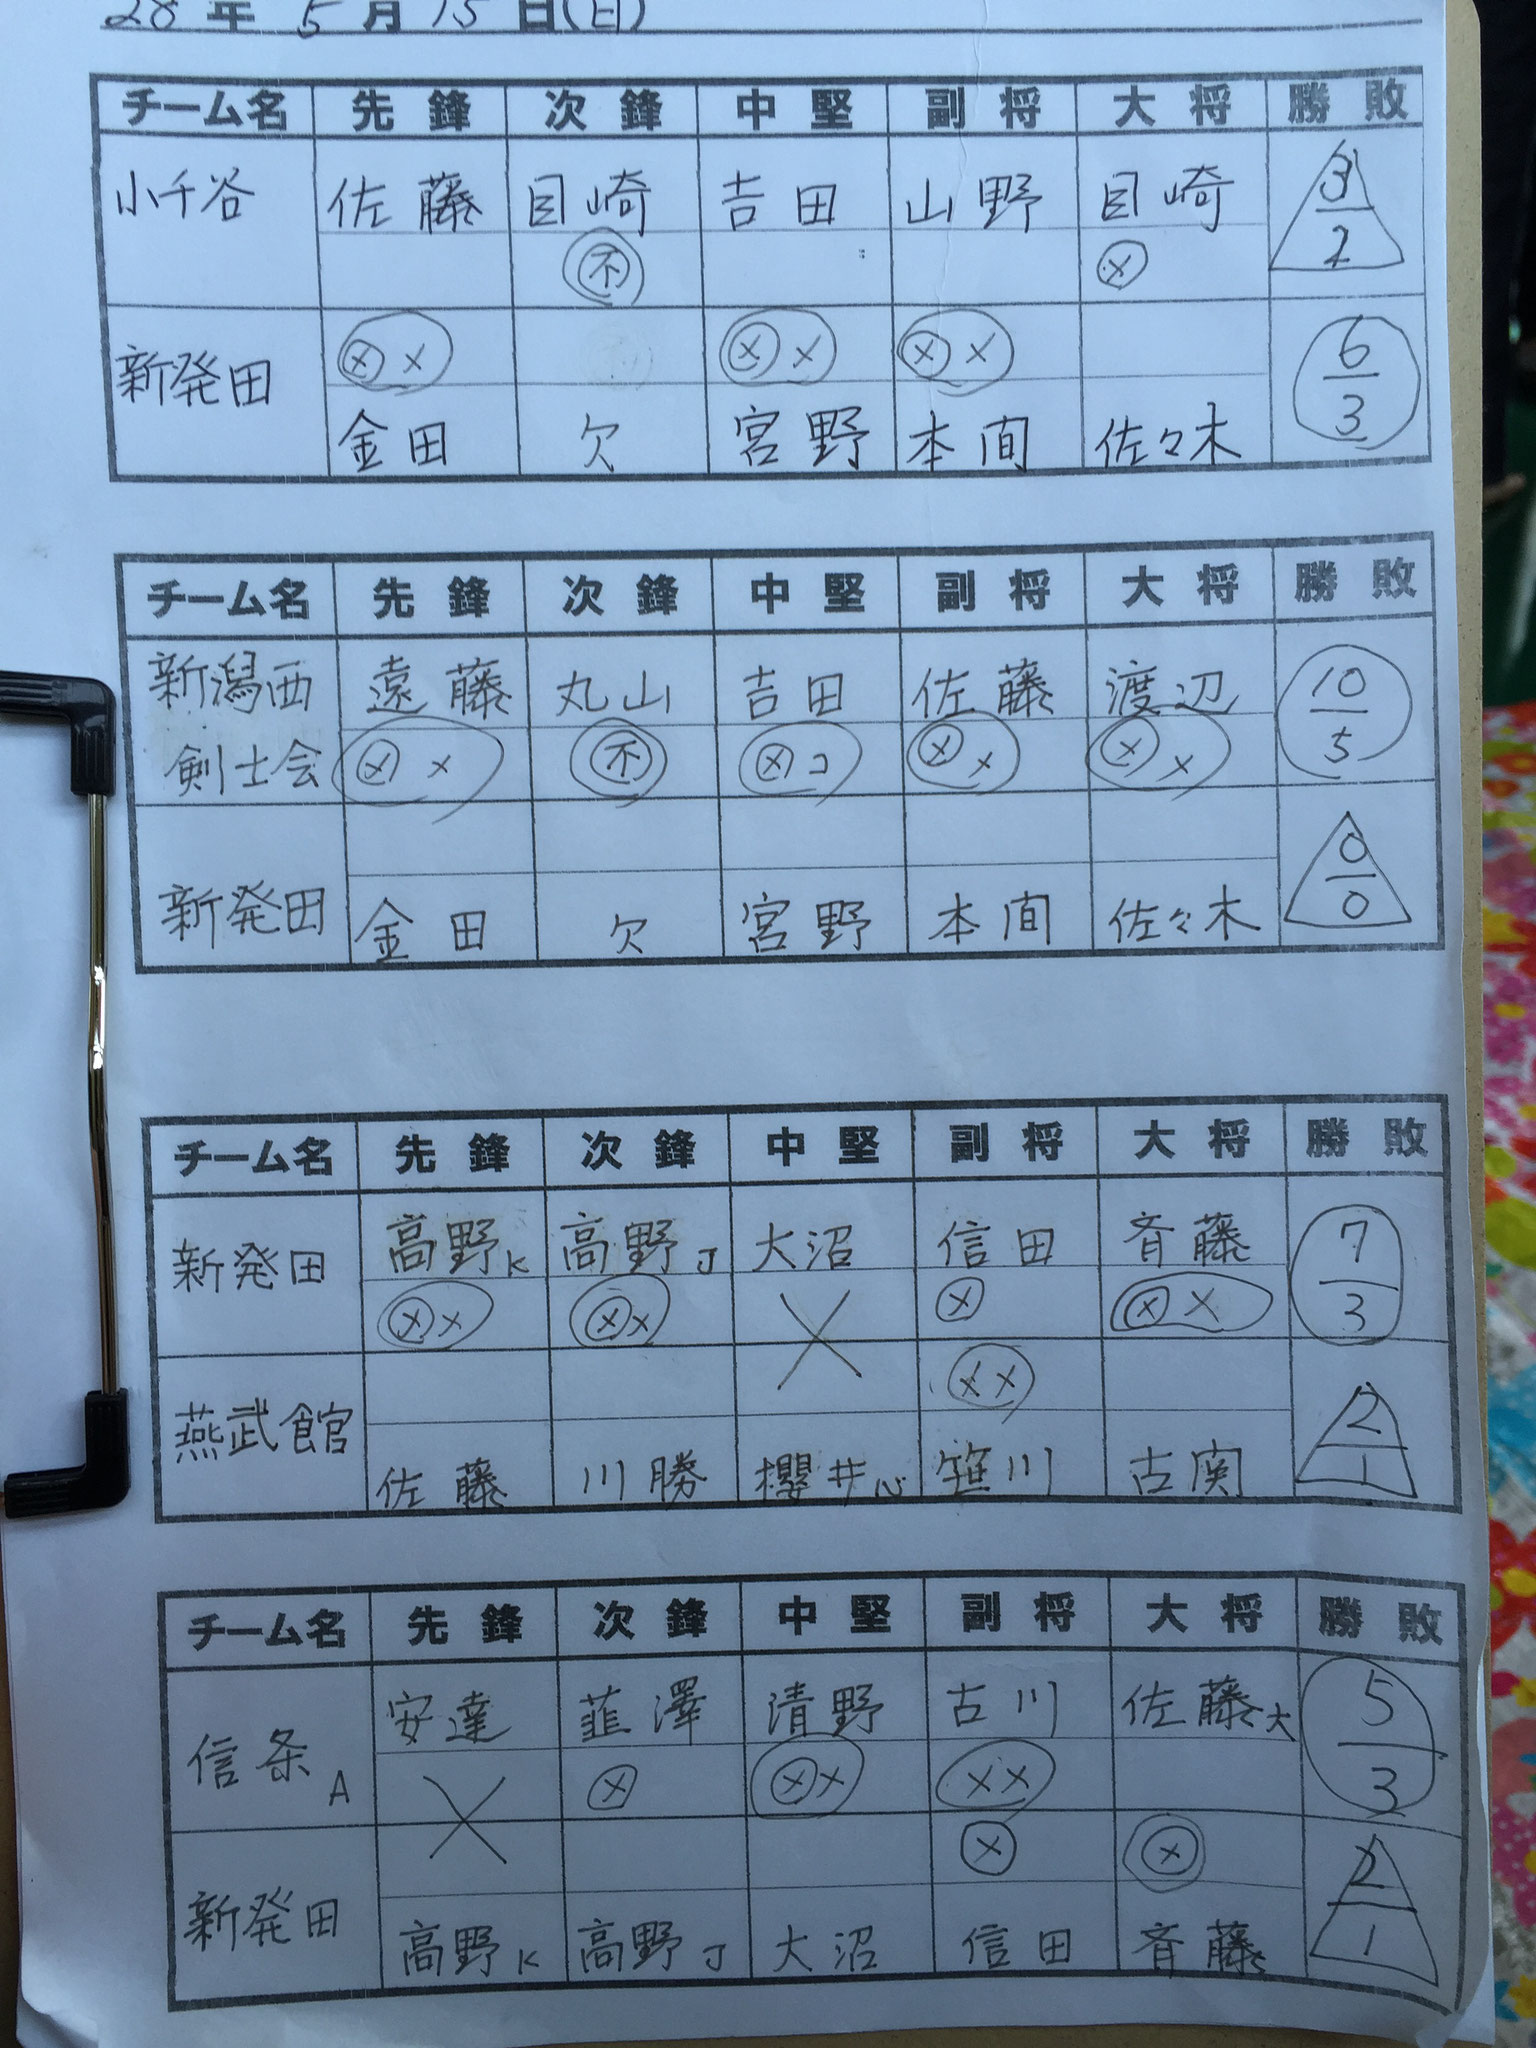 28年5月15日(日)
チーム名 先鋒 次鋒 中堅 副将 大将 勝敗
小千谷 佐藤 目崎 吉田 山野 目崎 3/2
不 メ
新発田 メメ メメ メメ 6/3
金田 欠 宮野 本間 佐々木
チーム名 先鋒 次鋒 中堅 副将 大将 勝敗
新潟西 遠藤 丸山 吉田 佐藤 渡辺 10/5
剣士会 メメ 不 メコ メメ メメ
新発田 金田 欠 宮野 本間 佐々木 0/0
チーム名 先鋒 次鋒 中堅 副将 大将 勝敗
新発田 高野K 高野J 大沼 信田 斉藤 7/3
メメ メメ メ メメ
メメ
燕武館 佐藤 川勝 櫻井心 笹川 古関 2/1
チーム名 先鋒 次鋒 中堅 副将 大将 勝敗
信条A 安達 韮澤 清野 古川 佐藤大 5/3
メ メメ メメ
メ メ
新発田 高野K 高野J 大沼 信田 斉藤 2/1